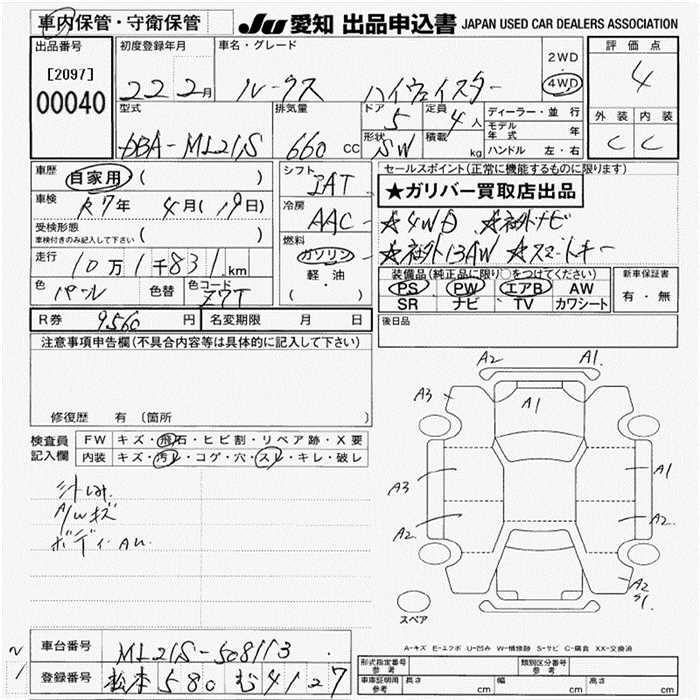 車内保管・守衛保管 JU 愛知 出品申込書 JAPAN USED CAR DEALERS ASSOCIATION
出品番号 初度登録年月 車名・グレード 2WD 評価点
[2097] 22 2月 ルークス ハイウェイスター 4WD 4
00040 型式 排気量 ドア 5 定員 4人 ディーラー・並行 外装 内装
DBA-ML21S 660 CC 形状 SW 積載 kg モデル年式 年 C C
ハンドル 左・右
車歴 自家用 ( ) シフト IAT セールスポイント(正常に機能するものに限ります)
車検 R7年 4月(19日) 冷房 AAC ★ガリバー買取店出品
受検形態 ( ) ☆4WD ☆社外ナビ
車検付きのみ記入して下さい 燃料 ガソリン ☆社外13AW ☆スマートキー
走行 10万1千831km 軽油 装備品(純正品に限り○をつけてください) 新車保証書
色 パール 色替 色コード ZWT ( ) PS PW エアB AW 有・無
SR ナビ TV カワシート
R券 9,560円 名変期限 月 日 後日品
注意事項申告欄(不具合内容等は具体的に記入して下さい)
修復歴 有 (箇所
検査員記入欄 FW キズ・飛石・ヒビ割・リペア跡・X要
内装 キズ・汚レ・コゲ・穴・スレ・キレ・破レ
A/Wキズ
ボディ
A2 A1
A3 A1
A3 A1
A2 A2
A2
S1
スペア
A-キズ E-エクボ U-凹み W-補修跡 S-サビ C-腐食 XX-交換済
車台番号 ML21S-508113
登録番号 松本 580 む 4127
型式指定番号 参考 類別区分番号 参考
車庫証明用 参考 長さ cm 幅 cm 高さ cm